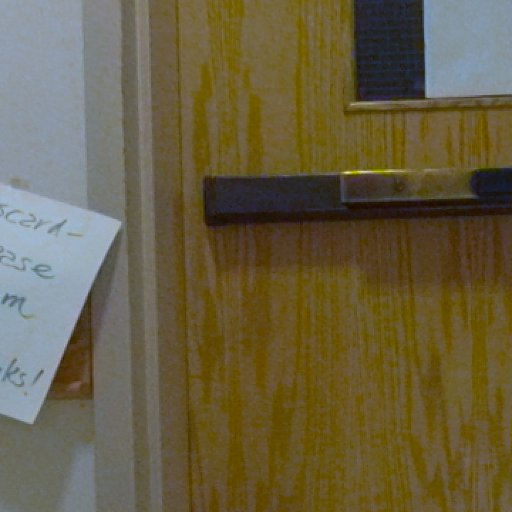 scard-
ease
m
ks!